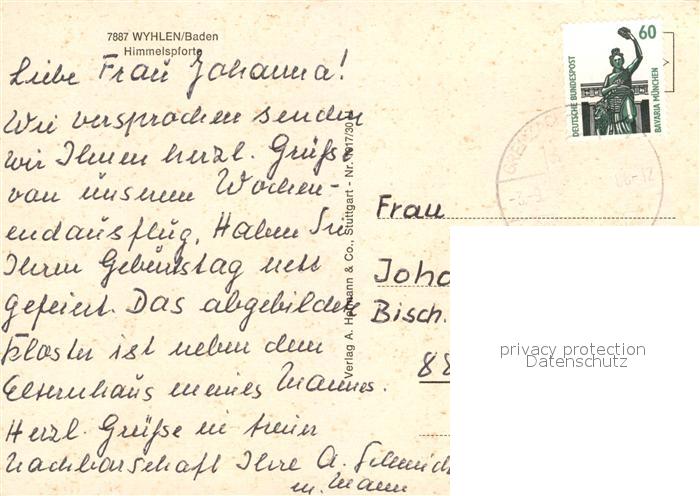 7887 WYHLEN/Baden
Himmelspforte
Liebe Frau Johanna!
Wie versprochen senden
wir Ihnen herzl. Grüße
von unserem Wochen-
endausflug. Haben Sie
Ihren Geburtstag nett
gefeiert. Das abgebildete
Kloster ist neben dem
Elternhaus meines Mannes.
Herzl. Grüße in treuer
Nachbarschaft Ihre A. Schmid
u. Mann
Verlag A. & Co., Stuttgart - Nr.
60
DEUTSCHE BUNDESPOST
BAVARIA MÜNCHEN
Frau
Joha
Bisch.
88
privacy protection
Datenschutz